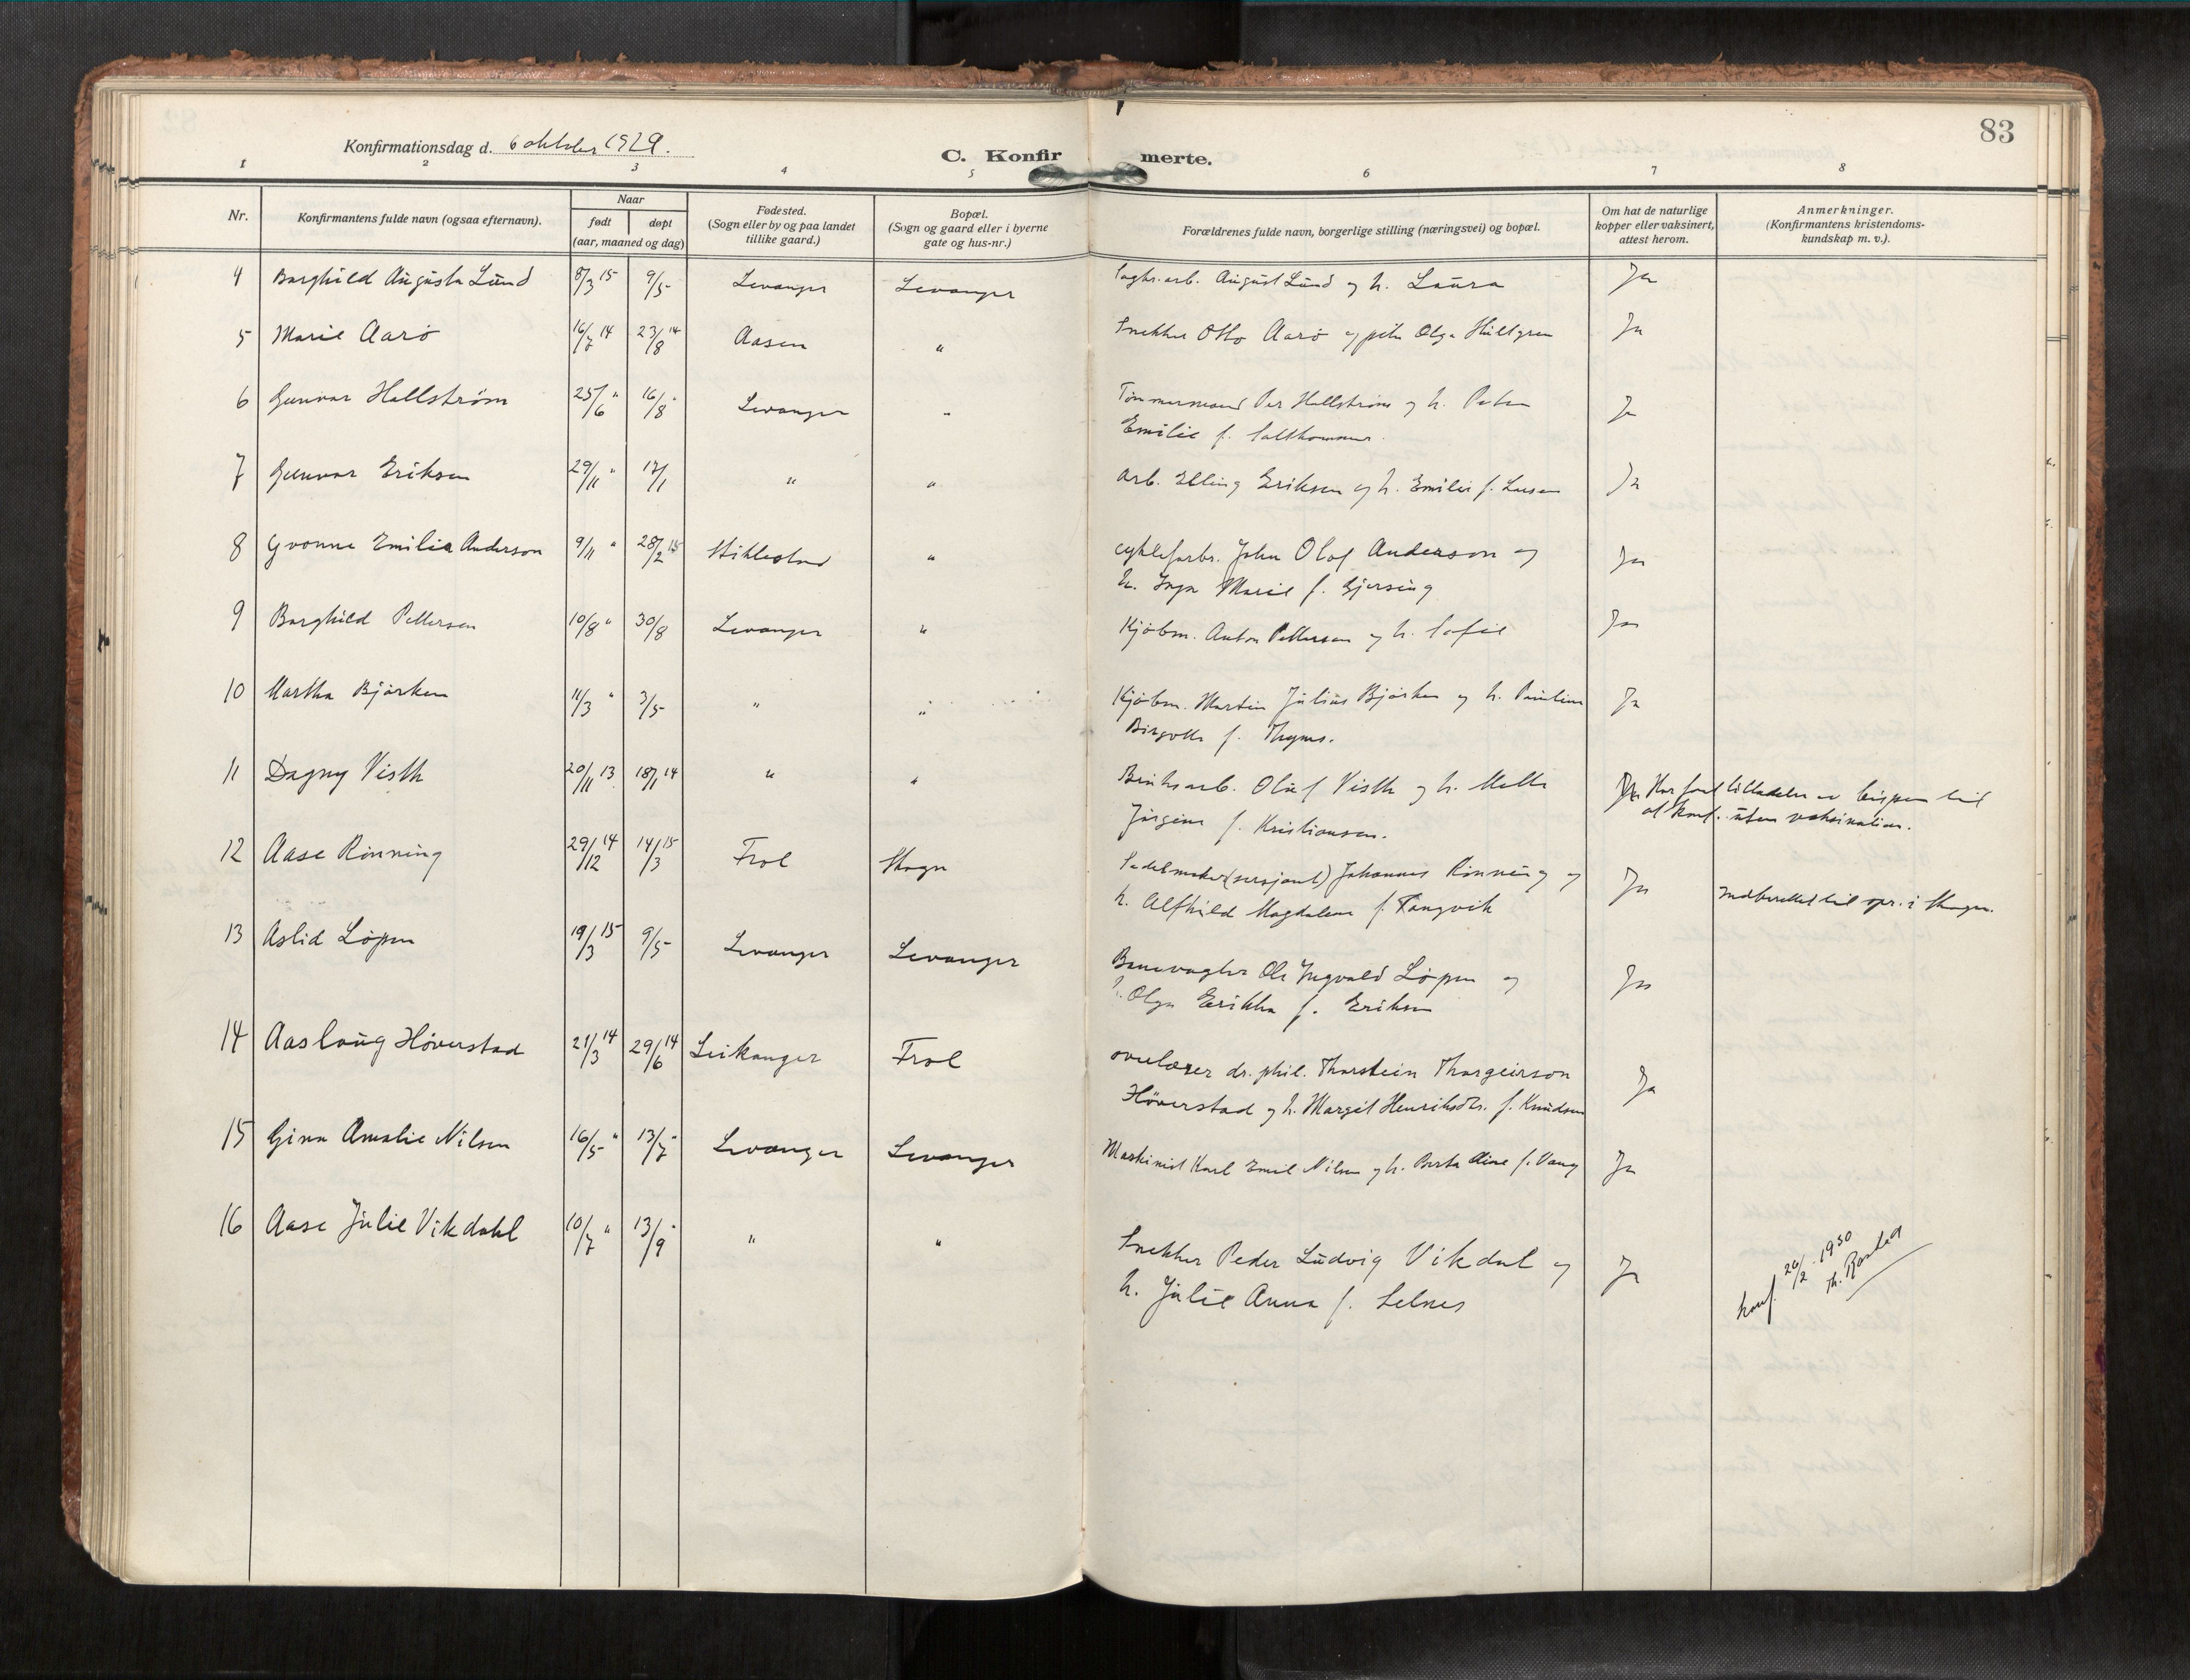 83
Konfirmationsdag d. 6 oktober 1929.
C. Konfirmerte.
1 2 3 4 5 6 7 8
Nr.
Konfirmantens fulde navn (ogsaa efternavn).
Naar
født
døpt
(aar, maaned og dag)
Fødested.
(Sogn eller by og paa landet
tillike gaard.)
Bopæl.
(Sogn og gaard eller i byerne
gate og hus-nr.)
Forældrenes fulde navn, borgerlige stilling (næringsvei) og bopæl.
Om hat de naturlige
kopper eller vaksinert,
attest herom.
Anmerkninger.
(Konfirmantens kristendoms-
kundskap m. v.).
4 Borghild Augusta Lund 8/3 15 9/5 Levanger Levanger arb. August Lund og h. Laura Ja
5 Marie Aarø 16/7 14 23/8 14 Aasen " Snekker Otto Aarø og Olga Hultgren Ja
6 Gunvor Hallstrøm 25/6 " 16/8 " Levanger " Tømmermand Per Hallstrøm og h. Petra Ja
Emilie f. Salthammer.
7 Gunvor Eriksen 29/11 " 17/1 " " Arb. Elling Eriksen og h. Emilie f. Larsen Ja
8 Yvonne Emilie Anderson 9/11 " 28/2 15 Stiklestad " cyklefabr. John Olof Anderson og Ja
h. Inga Marie f. Gjersing
9 Borghild Pettersen 10/8 " 30/8 Levanger " Kjøbm. Anton Pettersen og h. Sofie Ja
10 Martha Bjørken 11/3 " 3/5 " " Kjøbm. Martin Julius Bjørken og h. Pauline Ja
Birgitte f. Thyms.
11 Dagny Visth 20/11 13 18/1 14 " " Bruksarb. Oluf Visth og h. Mette Ja Har faat tilladelse av bispen til
Jørgine f. Kristiansen. at konf. uten vaksination.
12 Aase Rønning 29/12 14 14/3 15 Frol Skogn Sadelmaker (sersjant) Johannes Rønning og Ja Indberettet til spr. i Skogn.
h. Alfhild Magdalene f. Tangvik
13 Aslid Løpen 19/3 15 9/5 Levanger Levanger Banevogter Ole Ingvald Løpen og Ja
h. Olga Erikka f. Eriksen
14 Aaslaug Høverstad 21/3 14 29/6 14 Leikanger Frol overlærer dr. phil. Thorstein Thorgeirson Ja
Høverstad og h. Margit Henriksdtr. f. Knudsen
15 Gina Amalie Nilsen 16/5 " 13/7 " Levanger Levanger Maskinist Karl Emil Nilsen og h. Berta Aline f. Vang Ja
16 Aase Julie Vikdahl 10/7 " 13/9 " " " Snekker Peder Ludvig Vikdal og Ja konf. 26/2 1930
h. Julie Anna f. Selnes